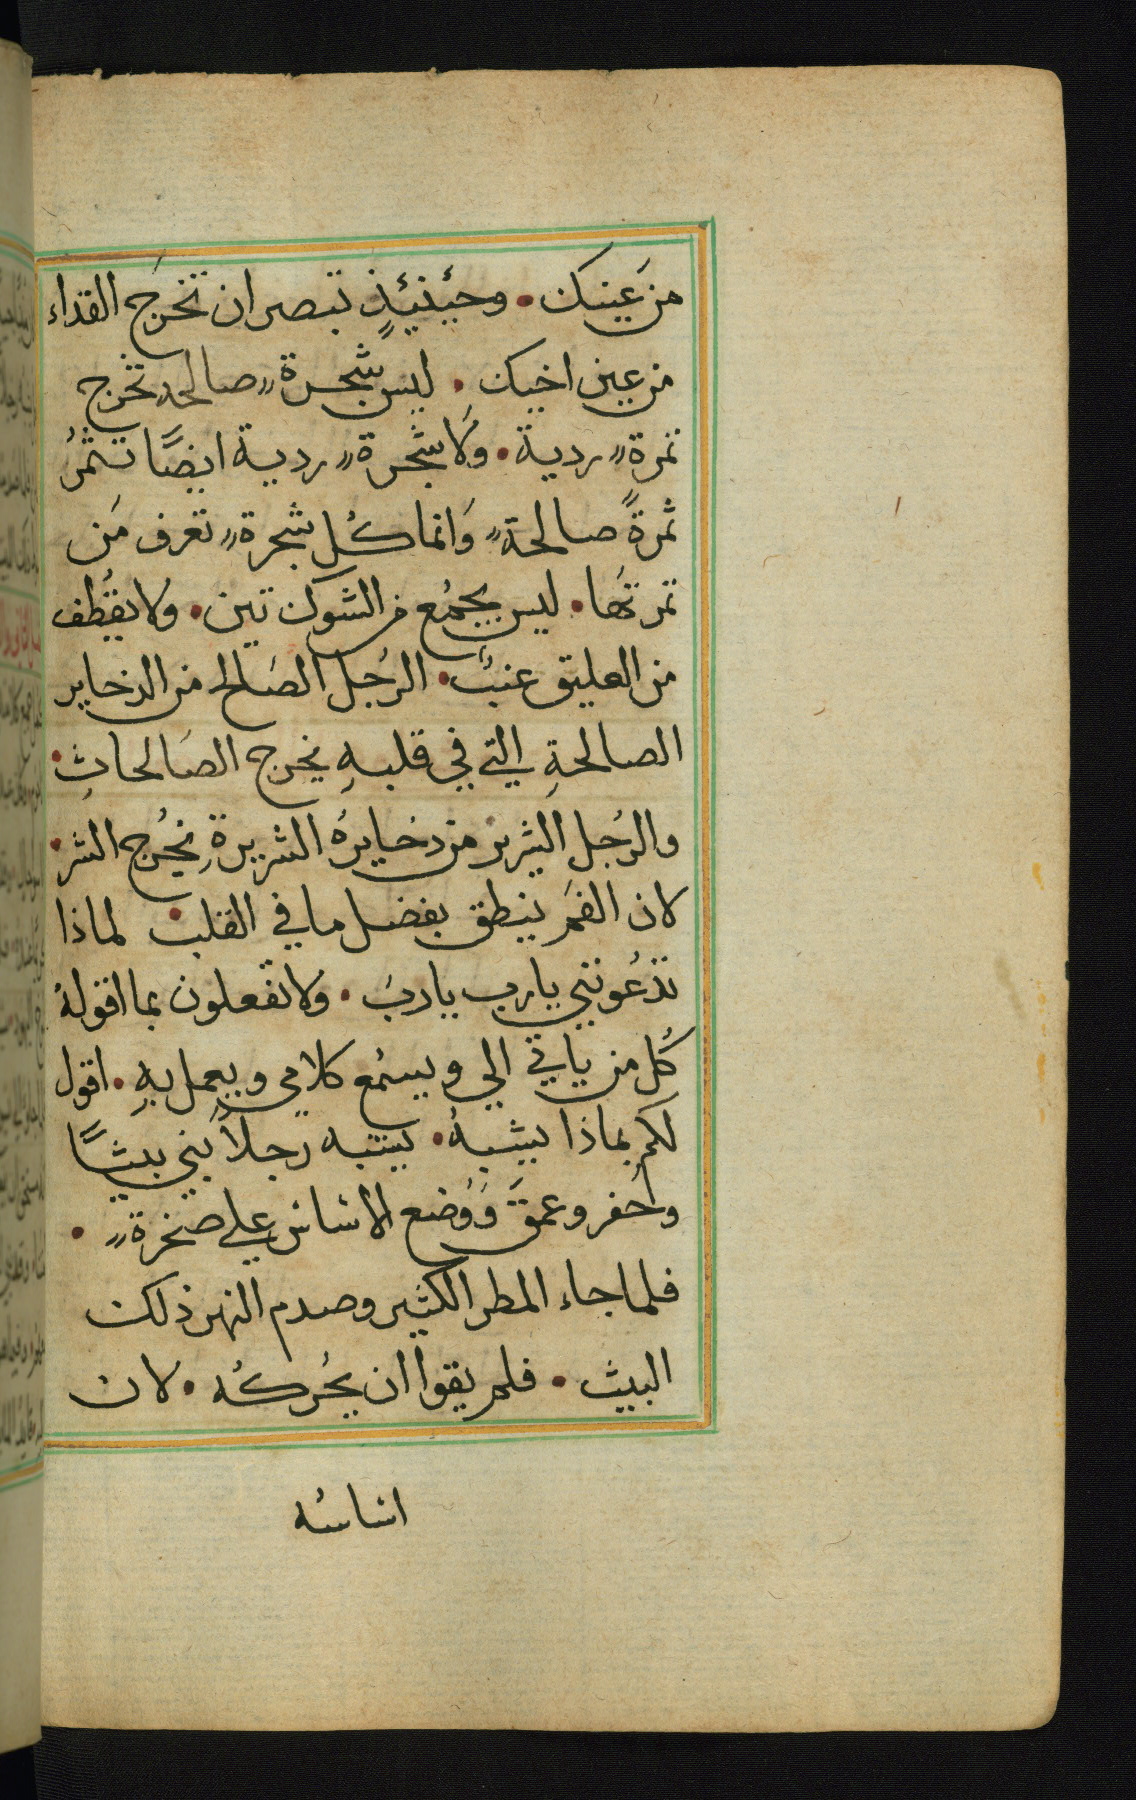 من عينك • وحئنئذٍ تبصر ان تخرج القداء
من عين اخيك • ليس شجرةٍ صالحه تخرج
ثمرةٍ ردية • ولا شجرةٍ ردية ايضًا تثمرُ
ثمرةً صالحةٍ وَانما كُل شجرةٍ تعرف مَن
ثمرتها • ليس يجمُع من الشوك تين • ولا يقُطف
من العليق عنبٌ • الرجُل الصَالح من الدخاير
الصالحةِ التي في قلبهِ يخرج الصَالحاتِ •
والرجُل الشرير من دخايرهُ الشريرةِ يخُرج الشر •
لان الفمَر ينطق بفضل ما في القلب • لماذا
تدعُونني يارب ياربَ • ولا تفعلون بما اقولهُ
كُل من ياتي الي ويسمُع كلامي ويعمل بهِ • اقول
لكم بماذا يشبهُ • يشبه رجلاً بَني بيتًا
واحَفر وعمقَ وَوُضع الاساس علي صخرةٍ •
فلما جاء المطر الكثير وصدم النهر ذلك
البيت • فلم يقوا ان يحُركُه • لان
اساسُه